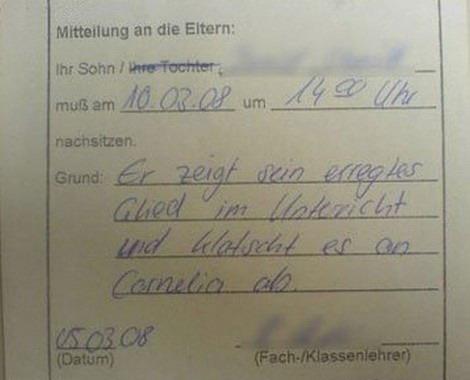 Mitteilung an die Eltern:
Ihr Sohn / Ihre Tochter,
muß am 10.03.08 um 14 00 Uhr
nachsitzen.
Grund: Er zeigt sein erregtes
Glied im Unterricht
und klatscht es an
Cornelia ab.
05.03.08
(Datum) (Fach-/Klassenlehrer)